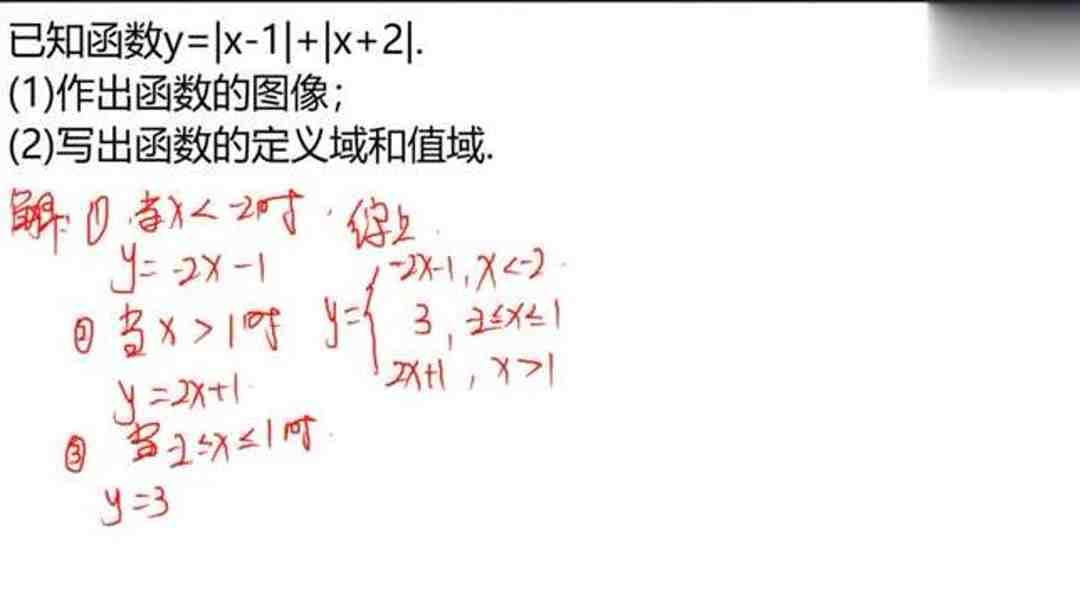 已知函数y=|x-1|+|x+2|.
(1)作出函数的图像；
(2)写出函数的定义域和值域.
解: ① 当x<-2时.
y=-2x-1
② 当x>1时
y=2x+1
③ 当-2≤x≤1时.
y=3
综上.
y={
-2x-1, x<-2.
3, -2≤x≤1
2x+1, x>1